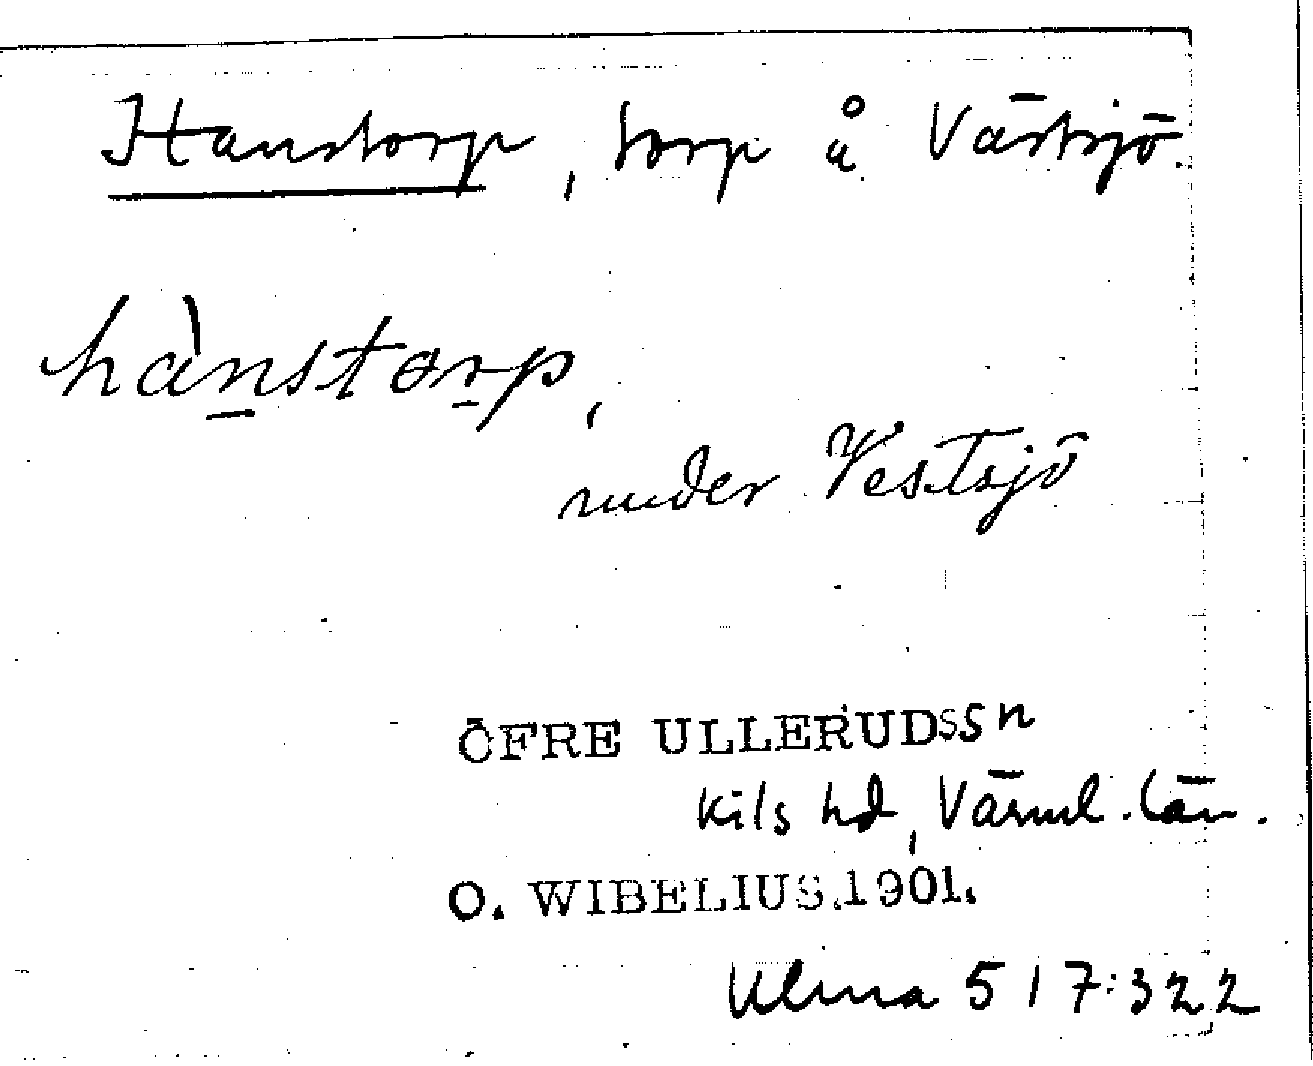 Hanstorp, torp å Västsjö.
hànstorp,
under Vestsjö
ÖFRE ULLERUDS sn
Kils hd, Värml. län.
O. WIBELIUS. 1901.
Ulma 517:322